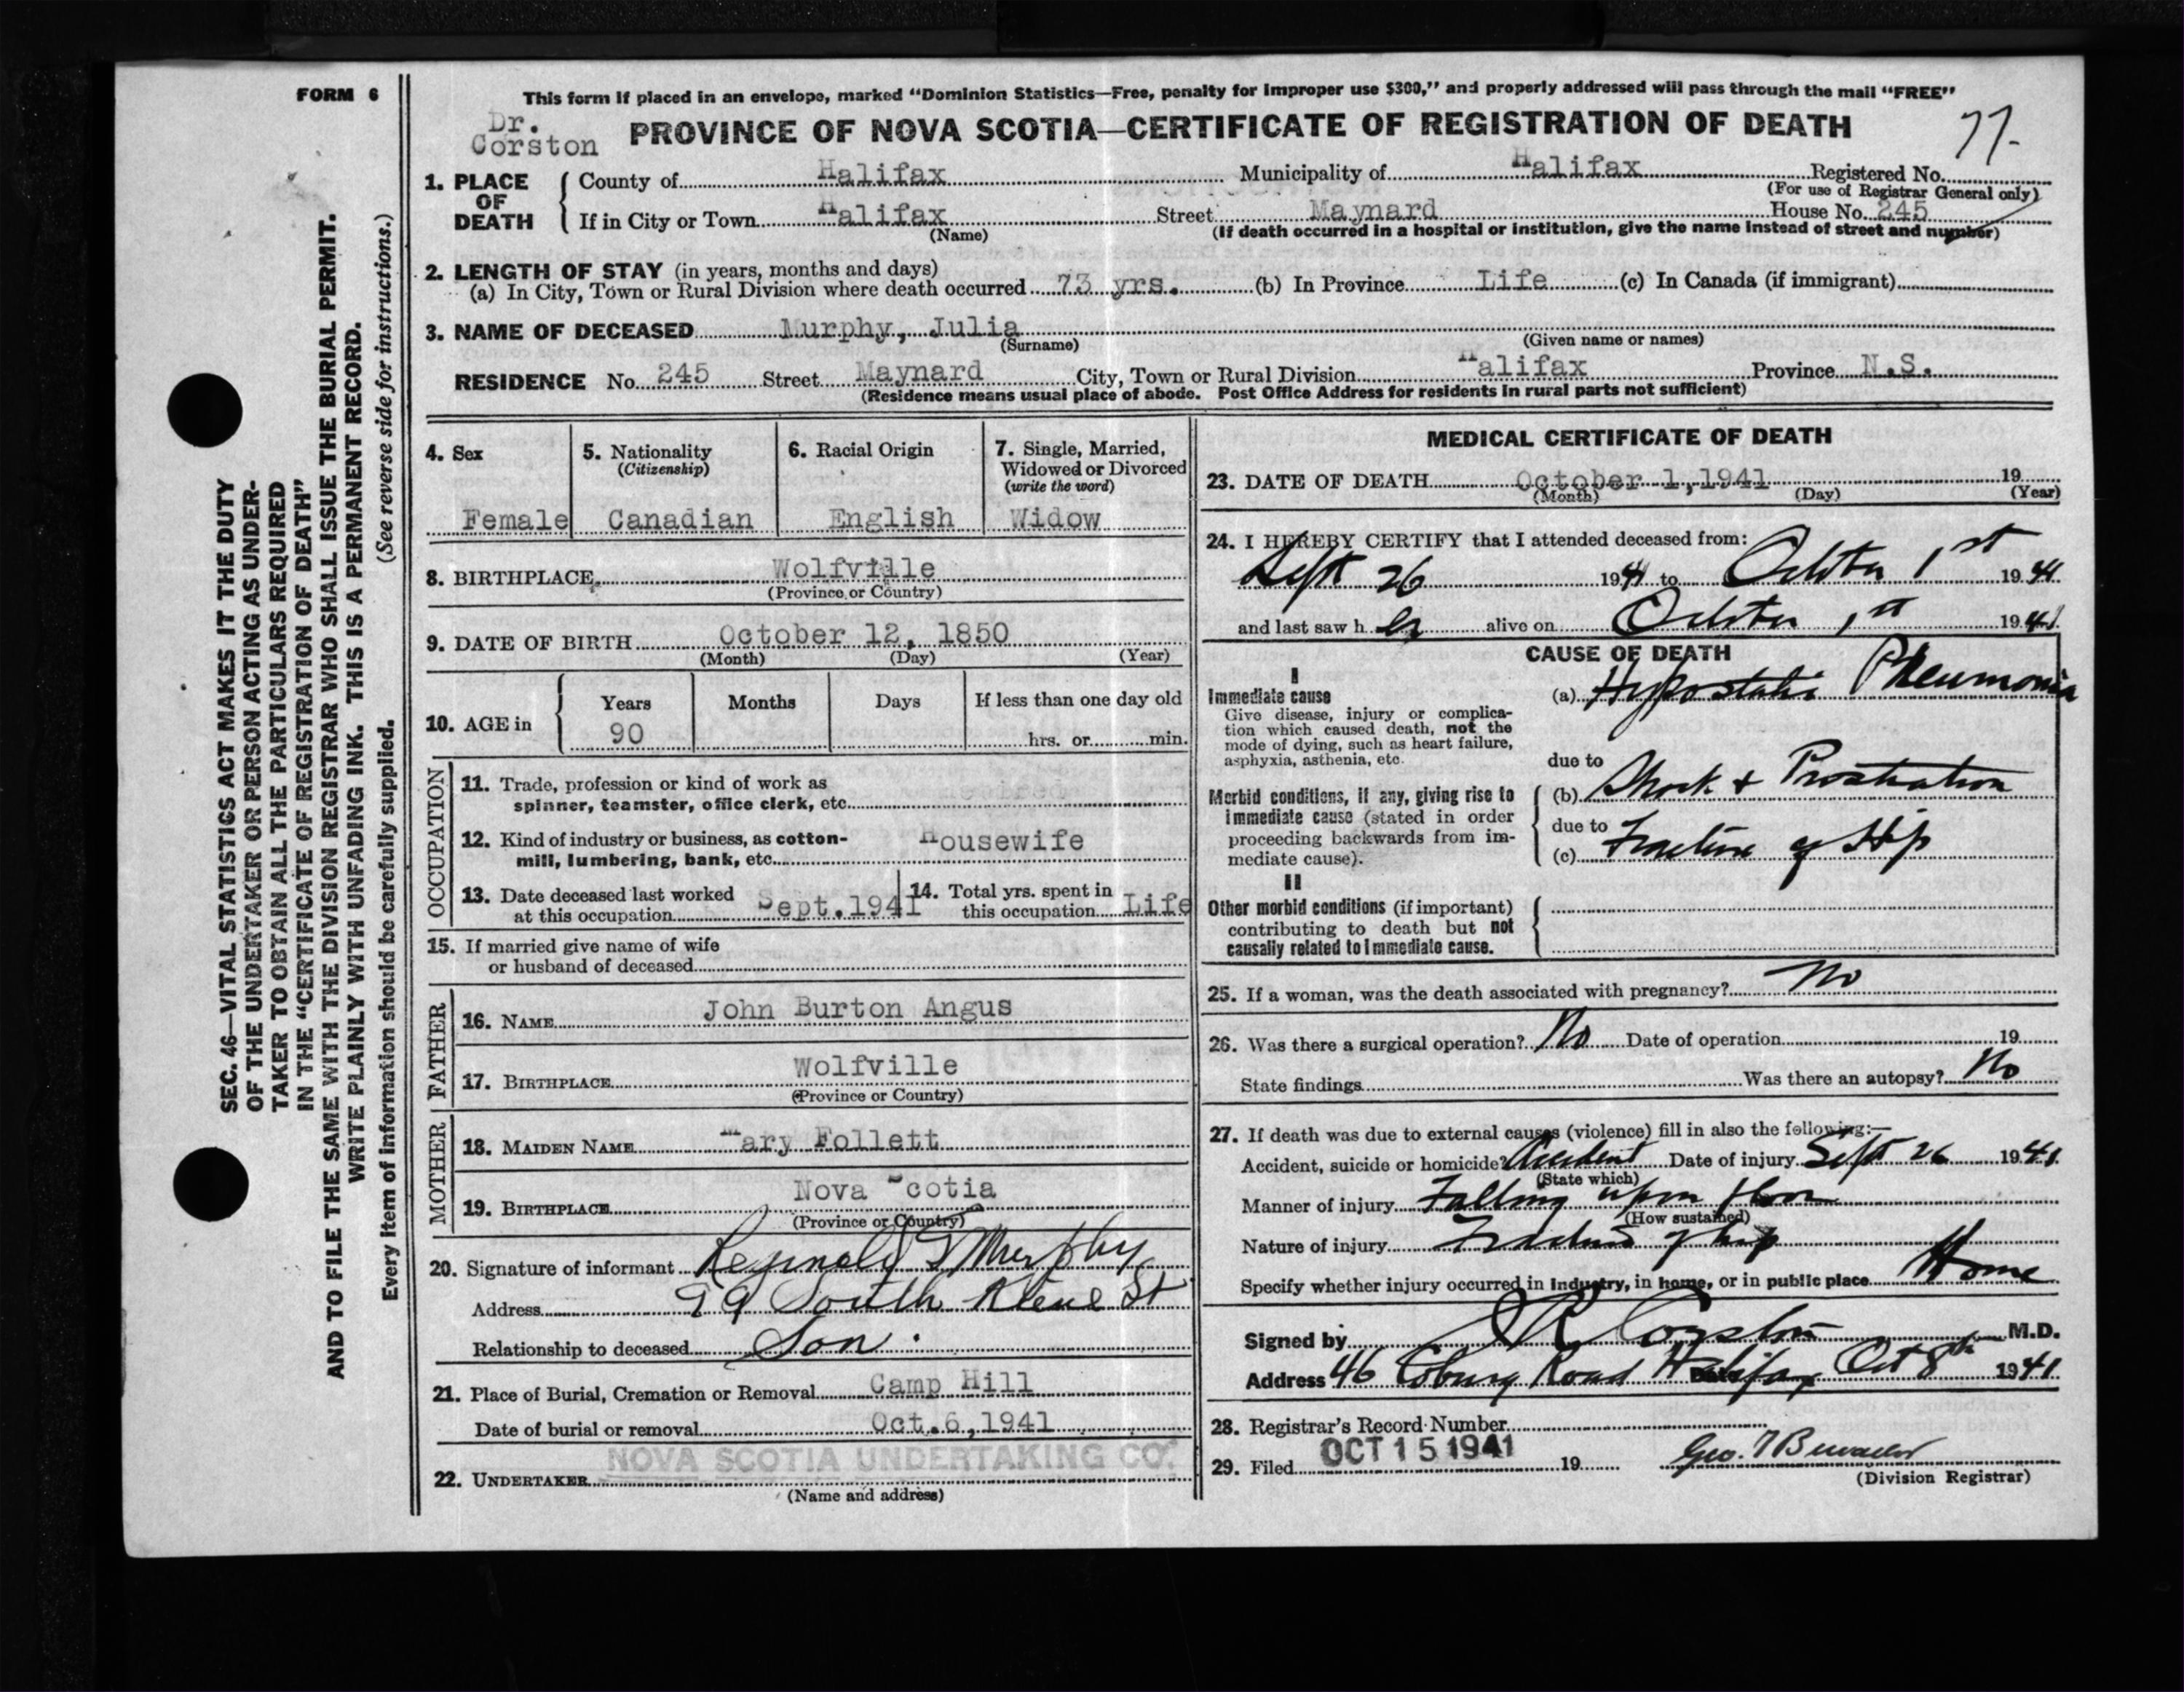 FORM 6
SEC. 46—VITAL STATISTICS ACT MAKES IT THE DUTY
OF THE UNDERTAKER OR PERSON ACTING AS UNDER-
TAKER TO OBTAIN ALL THE PARTICULARS REQUIRED
IN THE "CERTIFICATE OF REGISTRATION OF DEATH"
AND TO FILE THE SAME WITH THE DIVISION REGISTRAR WHO SHALL ISSUE THE BURIAL PERMIT.
WRITE PLAINLY WITH UNFADING INK. THIS IS A PERMANENT RECORD.
Every item of information should be carefully supplied. (See reverse side for instructions.)
This form if placed in an envelope, marked "Dominion Statistics—Free, penalty for improper use $300," and properly addressed will pass through the mail "FREE"
Dr.
Corston
PROVINCE OF NOVA SCOTIA—CERTIFICATE OF REGISTRATION OF DEATH
77-
1. PLACE OF DEATH
County of Halifax Municipality of Halifax Registered No.
(For use of Registrar General only)
If in City or Town Halifax Street Maynard House No. 245
(Name) (If death occurred in a hospital or institution, give the name instead of street and number)
2. LENGTH OF STAY (in years, months and days)
(a) In City, Town or Rural Division where death occurred 73 yrs. (b) In Province Life (c) In Canada (if immigrant)
3. NAME OF DECEASED Murphy, Julia
(Surname) (Given name or names)
RESIDENCE No. 245 Street Maynard City, Town or Rural Division Halifax Province N.S.
(Residence means usual place of abode. Post Office Address for residents in rural parts not sufficient)
4. Sex
Female
5. Nationality
(Citizenship)
Canadian
6. Racial Origin
English
7. Single, Married,
Widowed or Divorced
(write the word)
Widow
8. BIRTHPLACE Wolfville
(Province or Country)
9. DATE OF BIRTH October 12, 1850
(Month) (Day) (Year)
10. AGE in
Years Months Days If less than one day old
90 hrs. or min.
OCCUPATION
11. Trade, profession or kind of work as
spinner, teamster, office clerk, etc.
12. Kind of industry or business, as cotton-
mill, lumbering, bank, etc. Housewife
13. Date deceased last worked
at this occupation Sept.1941
14. Total yrs. spent in
this occupation Life
15. If married give name of wife
or husband of deceased
FATHER
16. NAME John Burton Angus
17. BIRTHPLACE Wolfville
(Province or Country)
MOTHER
18. MAIDEN NAME Mary Follett
19. BIRTHPLACE Nova Scotia
(Province or Country)
20. Signature of informant Reginald Murphy
Address 99 South Kline St
Relationship to deceased Son.
21. Place of Burial, Cremation or Removal Camp Hill
Date of burial or removal Oct.6,1941
NOVA SCOTIA UNDERTAKING CO.
22. UNDERTAKER
(Name and address)
MEDICAL CERTIFICATE OF DEATH
23. DATE OF DEATH October 1,1941 19
(Month) (Day) (Year)
24. I HEREBY CERTIFY that I attended deceased from:
Sept 26 1941 to October 1st 1941
and last saw her alive on October 1st 1941
CAUSE OF DEATH
I
Immediate cause
Give disease, injury or complica-
tion which caused death, not the
mode of dying, such as heart failure,
asphyxia, asthenia, etc.
(a) Hypostatic Pneumonia
due to
Morbid conditions, if any, giving rise to
immediate cause (stated in order
proceeding backwards from im-
mediate cause).
(b) Shock & Prostration
due to
(c) Fracture of Hip
II
Other morbid conditions (if important)
contributing to death but not
causally related to immediate cause.
25. If a woman, was the death associated with pregnancy? No
26. Was there a surgical operation? No Date of operation 19
State findings Was there an autopsy? No
27. If death was due to external causes (violence) fill in also the following:—
Accident, suicide or homicide? Accident Date of injury Sept 26 1941
(State which)
Manner of injury Falling upon floor
(How sustained)
Nature of injury Fracture of hip
Specify whether injury occurred in industry, in home, or in public place Home
Signed by Corston M.D.
Address 46 Coburg Road Halifax Date Oct 8th 1941
28. Registrar's Record Number
29. Filed OCT 15 1941 19
Geo.
(Division Registrar)